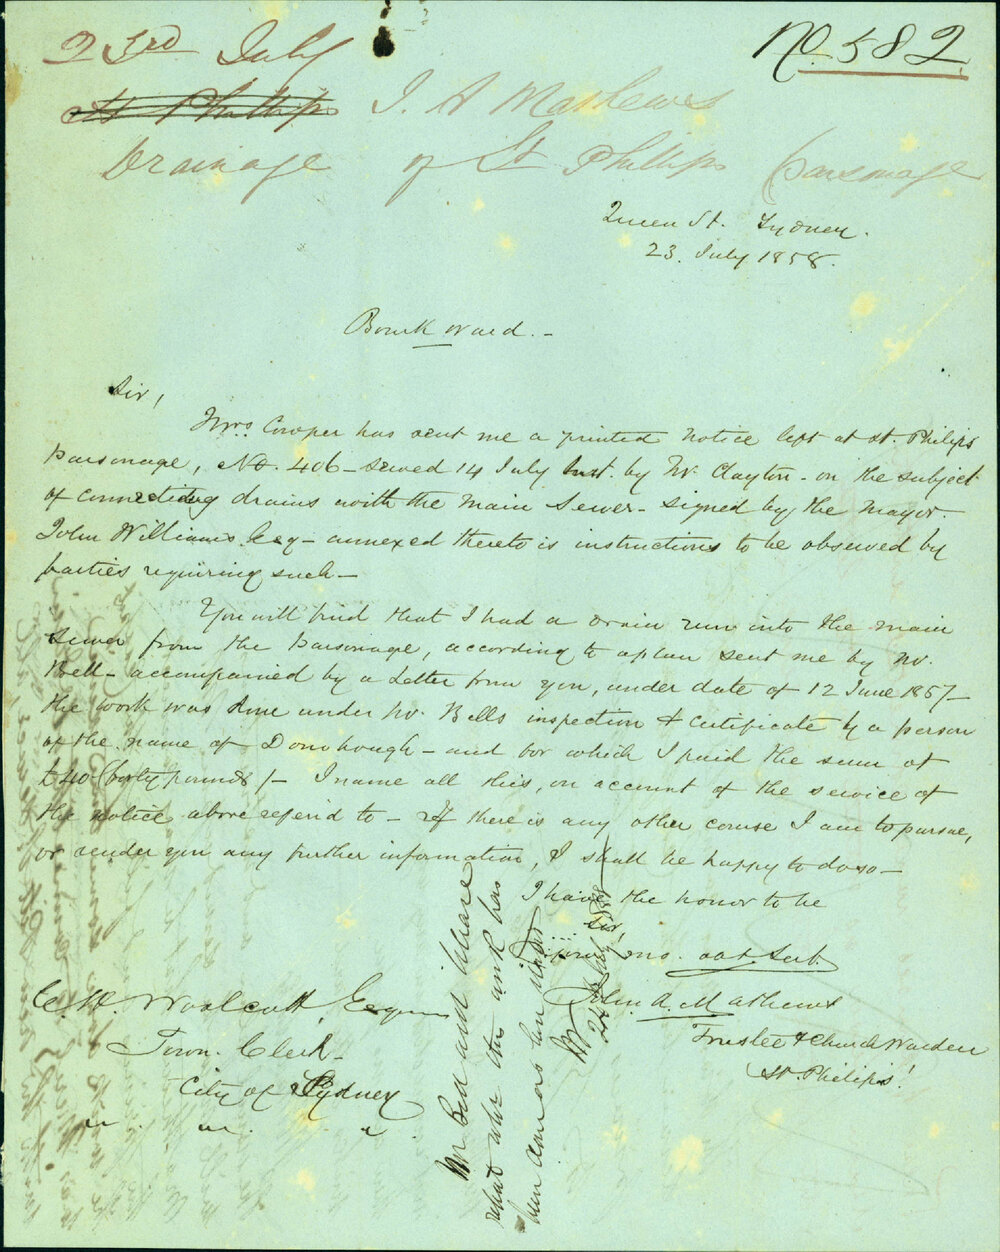 23rd July
No. 582
St Phillips J. A Mathews
Drainage of St Phillips parsonage
Queen St. Sydney.
23. July 1858.
Bourk Ward.-
Sir,
Mrs. Cowper has sent me a printed notice left at St. Philips
parsonage, No. 406 - served 14 July Inst. by Mr. Clayton - on the subject
of connecting drains with the main Sewer - signed by the Mayor -
John Williams Esq - annexed thereto is instructions to be observed by
parties requiring such -
You will find that I had a drain run into the main
sewer from the parsonage, according to a plan sent me by Mr.
Bell - accompanied by a Letter from you, under date of 12 June 1857 -
the work was done under Mr. Bells inspection & certificate by a person
of the name of Donohough - and for which I paid the sum of
£40 (forty pounds) - I name all this, on account of the service of
the notice above referd to - If there is any other course I am to pursue,
or render you any further information, I shall be happy to do so -
I have the honor to be
Sir,
your mo. obt Servt.
John A. Mathews
Trustee & Church Warden
St. Philips!
C. H. Woolcott, Esquire
Town Clerk -
City of Sydney
Mr Bell will please
report why this work has
been
24 July 1858